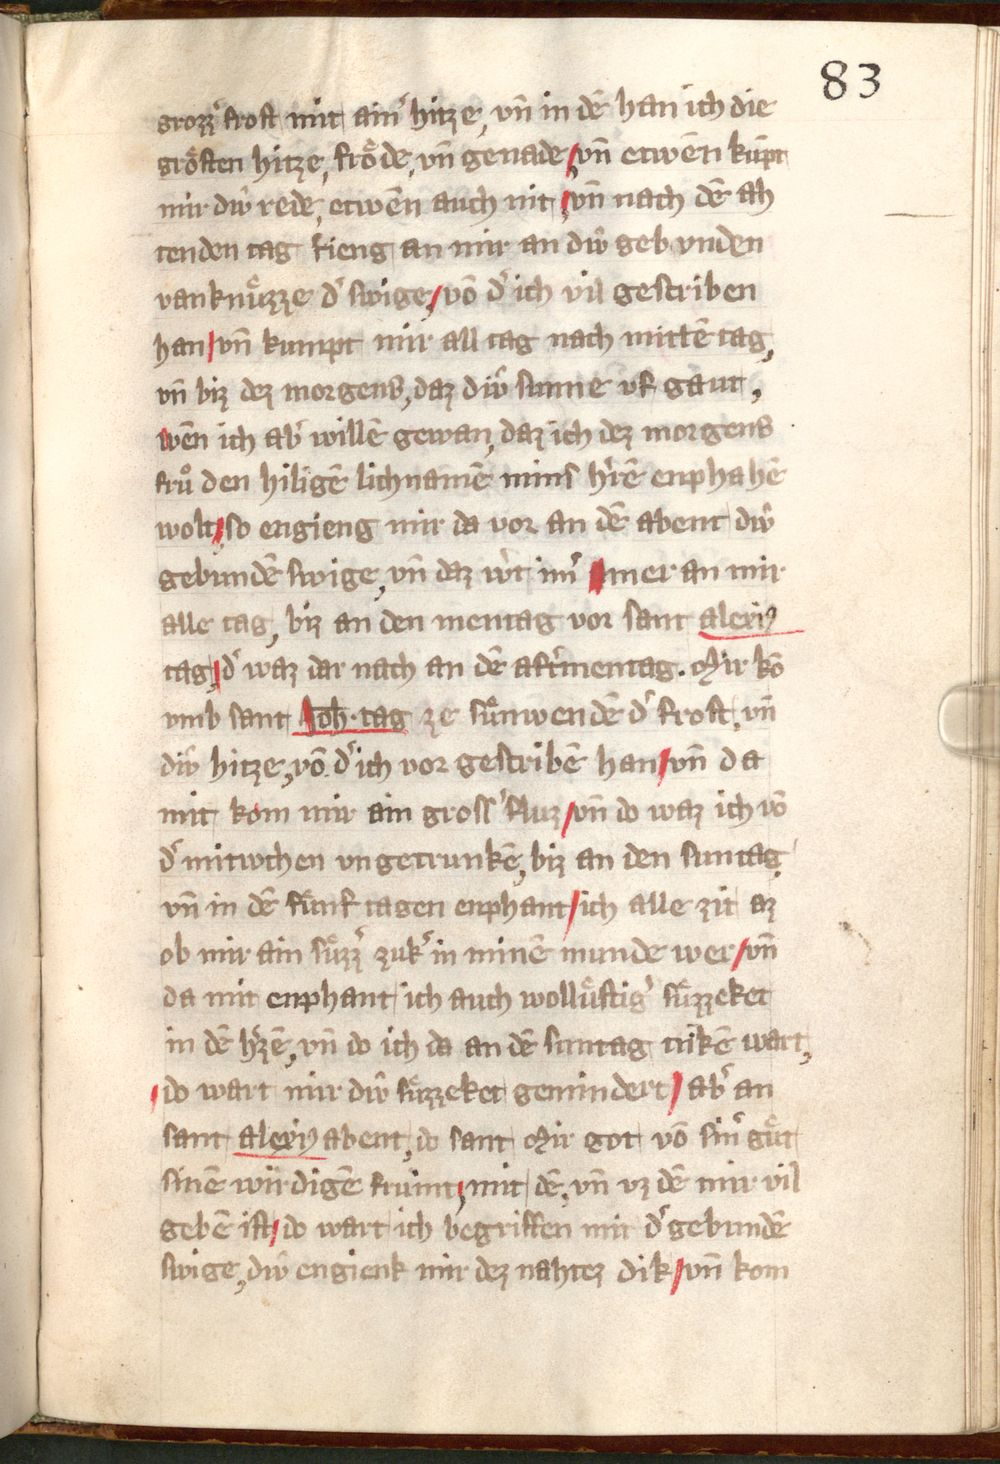 83
grozz᷑ frost mit ain᷑ hitze, vn̄ in dē han ich die
grȯ̂sten hitze, frȯ̂de, vn̄ genade / vn̄ etwēn kūpt
mir diŵ rede, etwēn auch nit / vn̄ nach dē ah
tenden tag fieng an mir an diŵ gebvnden
vanknuͤzze d᷑ swige / vō d᷑ ich vil gescriben
han / vn̄ kumpt mir all tag nach mittē tag,
vn̄ biz dez morgens, daz diŵ sunne vf gaut,
wēn ich ab᷑ willē gewan, daz ich dez morgens
frů den hiligē lichnamē mins h᷑rē enphahē
wolt / so engieng mir da vor an dē abent diŵ
gebundē swige, vn̄ daz w᷑t im᷑ mer an mir
alle tag, biz an den mentag vor sant alexiy
tag / d᷑ waz dar nach an dē aft᷑mentag. Mir kō
vmb sant Joh. tag ze suͤnwendē d᷑ frost, vn̄
diŵ hitze, vō d᷑ ich vor gescribē han / vn̄ da
mit kom mir ain gross᷑ fluz / vn̄ do waz ich vō
d᷑ mitwchen vngetrunkē, biz an den suntag,
vn̄ in dē fuͤnf tagen enphant / ich alle zit az
ob mir ain suͤzz᷑ zuk᷑ in minē munde wer / vn̄
da mit enphant ich auch wolluͤstig᷑ suͤzzeket
in dē h᷑zē, vn̄ do ich da an dē suntag trīkē wart,
/ do wart mir diŵ suͤzzeket gemindert / ab᷑ an
sant alexiy abent, do sant Mir got vō sin᷑ guͤt
sinē wirdigē fruͤnt, mit dē, vn̄ vz dē mir vil
gebē ist / do wart ich begriffen mit d᷑ gebundē
swige, diŵ engienk mir dez nahtez dik / vn̄ kom